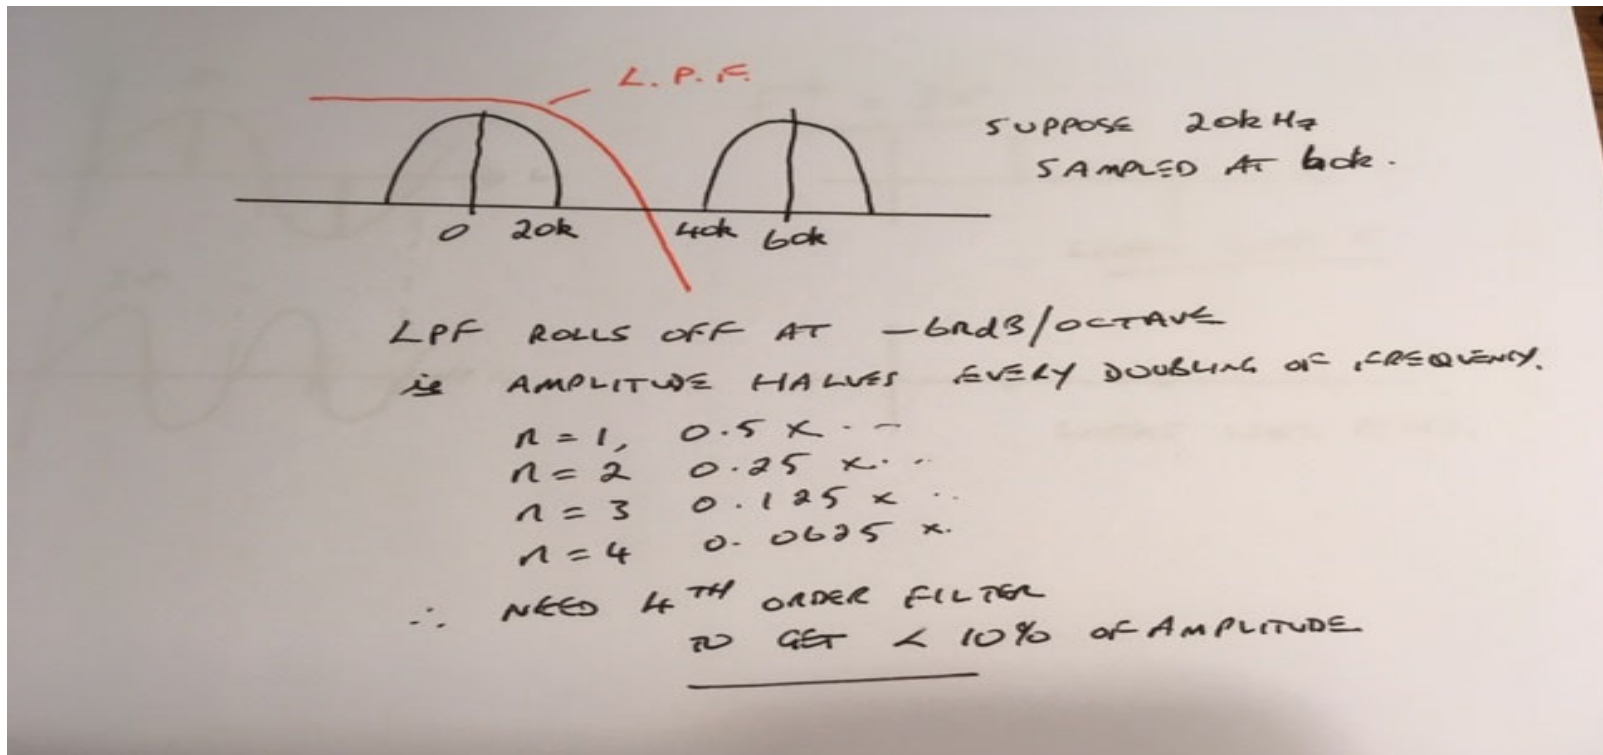 L.P.F.
SUPPOSE 20kHz
SAMPLED AT 60k.
0 20k 40k 60k
LPF ROLLS OFF AT -6ndB/OCTAVE
ie AMPLITUDE HALVES EVERY DOUBLING OF FREQUENCY.
n = 1, 0.5 x . -
n = 2 0.25 x . .
n = 3 0.125 x ..
n = 4 0.0625 x.
∴ NEED 4TH ORDER FILTER
TO GET < 10% OF AMPLITUDE